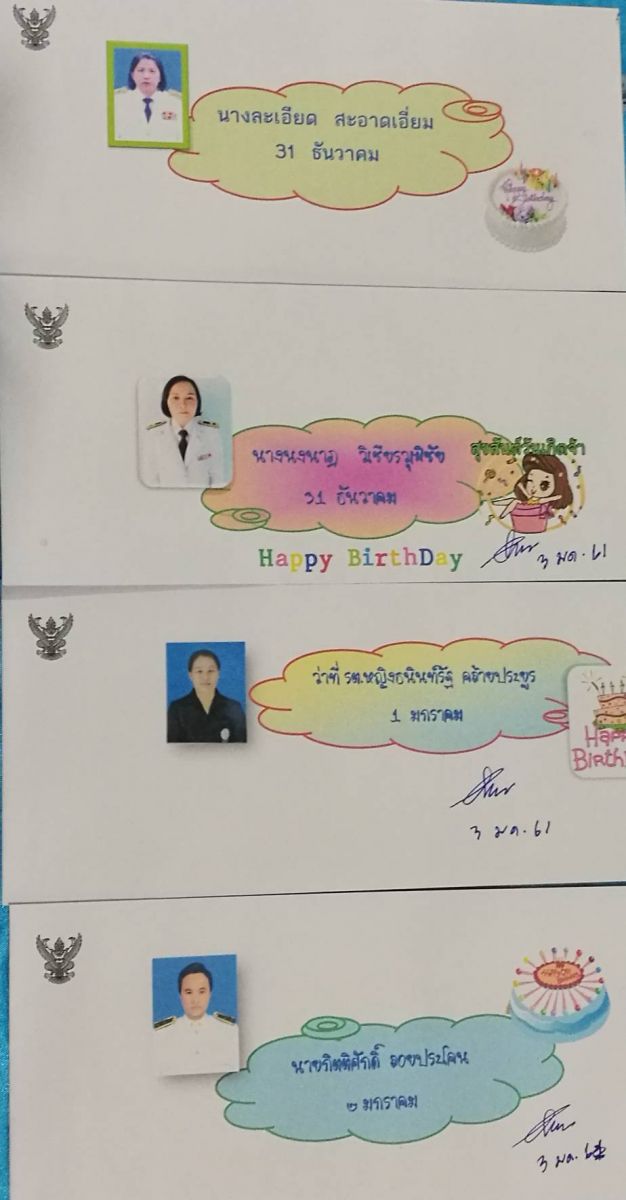 นางละเอียด สะอาดเอี่ยม
31 ธันวาคม
Happy
Birthday
นางนงนาฏ วิเชียรวุฒิชัย
31 ธันวาคม
สุขสันต์วันเกิดจ้า
Happy BirthDay
3 มค. 61
ว่าที่ รต.หญิงธนินท์รัฐ คล้ายประยูร
1 มกราคม
3 มค. 61
นายกิตติศักดิ์ ลอยประโคน
๒ มกราคม
3 มค.